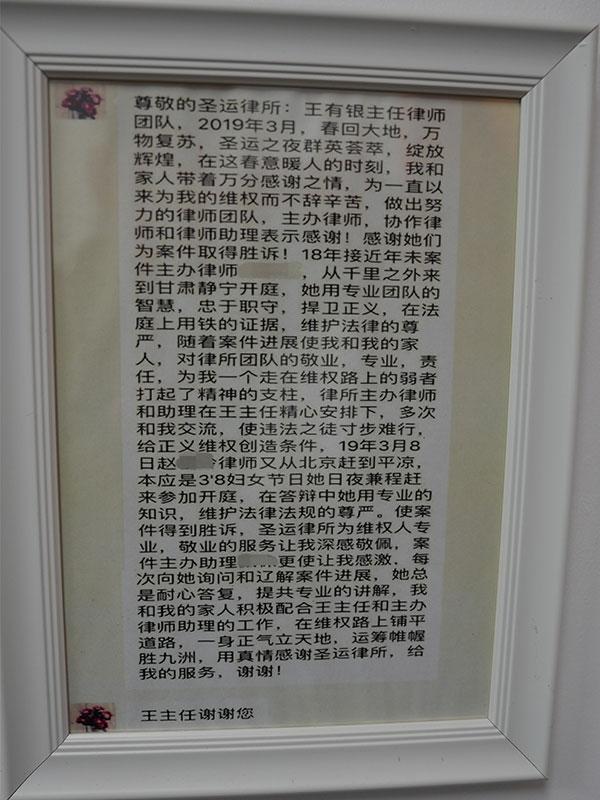 尊敬的圣运律所：王有银主任律师
团队，2019年3月，春回大地，万
物复苏，圣运之夜群英荟萃，绽放
辉煌，在这春意暖人的时刻，我和
家人带着万分感谢之情，为一直以
来为我的维权而不辞辛苦，做出努
力的律师团队，主办律师，协作律
师和律师助理表示感谢！感谢她们
为案件取得胜诉！18年接近年未案
件主办律师，从千里之外来
到甘肃静宁开庭，她用专业团队的
智慧，忠于职守，捍卫正义，在法
庭上用铁的证据，维护法律的尊
严，随着案件进展使我和我的家
人，对律所团队的敬业，专业，责
任，为我一个走在维权路上的弱者
打起了精神的支柱，律所主办律师
和助理在王主任精心安排下，多次
和我交流，使违法之徒寸步难行，
给正义维权创造条件，19年3月8
日赵律师又从北京赶到平凉，
本应是3'8妇女节日她日夜兼程赶
来参加开庭，在答辩中她用专业的
知识，维护法律法规的尊严。使案
件得到胜诉，圣运律所为维权人专
业，敬业的服务让我深感敬佩，案
件主办助理……更使让我感激，每
次向她询问和辽解案件进展，她总
是耐心答复，提共专业的讲解，我
和我的家人积极配合王主任和主办
律师助理的工作，在维权路上铺平
道路，一身正气立天地，运筹帷幄
胜九洲，用真情感谢圣运律所，给
我的服务，谢谢！
王主任谢谢您